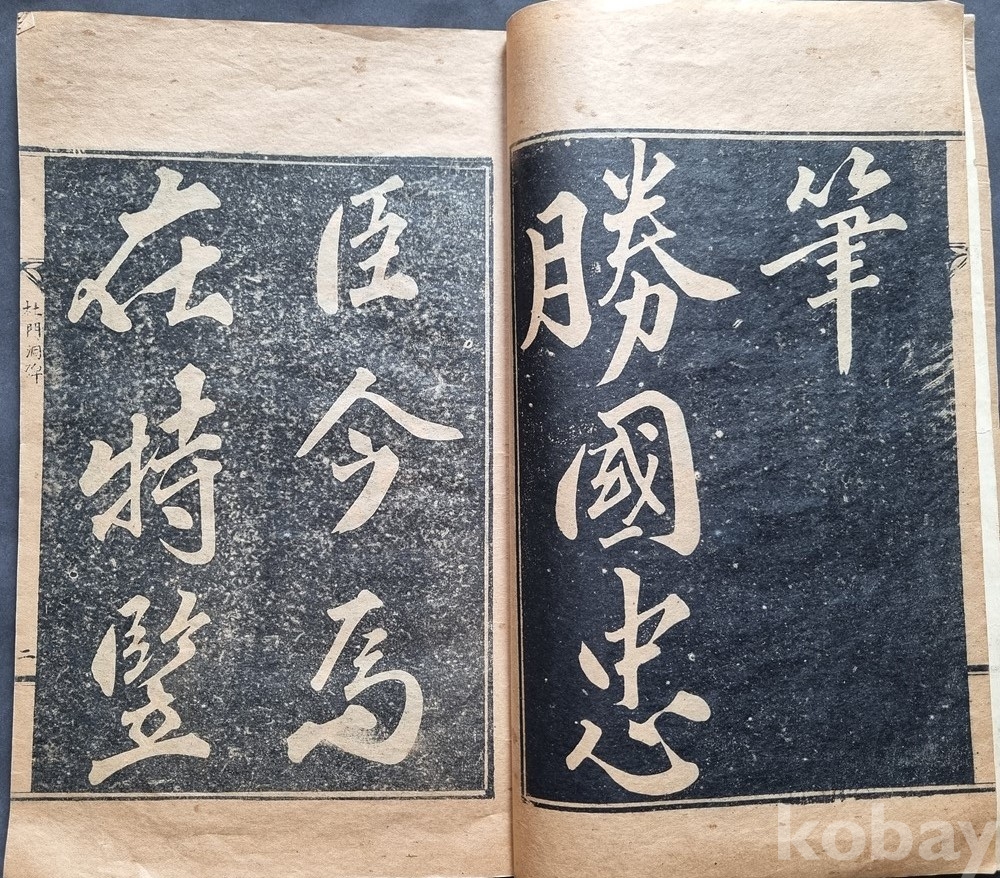 筆
勝國忠
臣今焉
在特竪
杜門洞碑
二
kobay